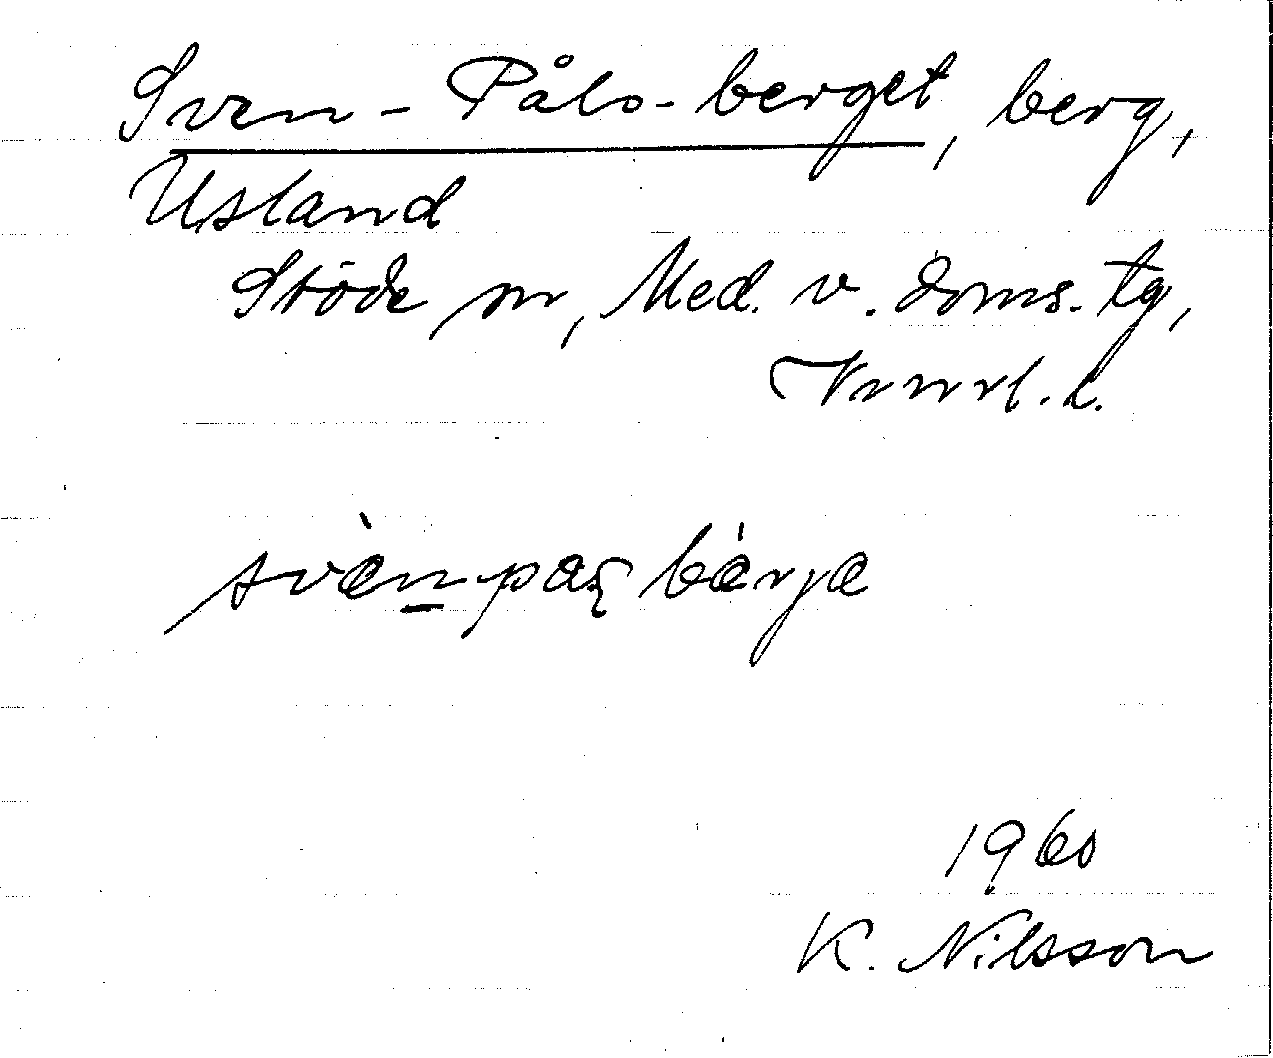 Sven-Påls-berget, berg,
Usland
Stöde sn, Med. v. doms. tg,
Vnrl. l.
svænpaș bærje
1960
K. Nilsson